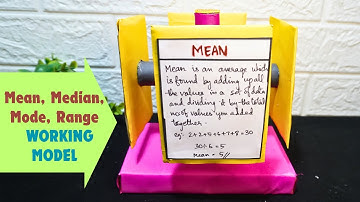 Mean, Median,
Mode, Range
WORKING
MODEL
MEAN
Mean is an average which
is found by adding up all
the values in a set of data
and dividing it by the total
no. of values you added
together.
eg:- 2+2+5+6+7+8=30
30÷6=5
mean = 5//